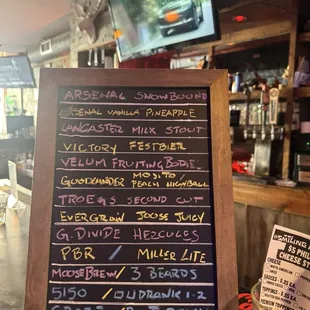 ARSENAL SNOWBOUND
ARSENAL VANILLA PINEAPPLE
LANCASTER MILK STOUT
VICTORY FESTBIER
VELUM FRUITING BODIE
GOODLANDER MOJITO
PEACH HIGHBALL
TROEGS SECOND CUT
EVERGRAIN JOOSE JUICY
G. DIVIDE HERCULES
PBR / MILLER LITE
MOOSE BREW / 3 BEARDS
5150 / OUDRONK 1-2
$5 PHIL
CHEESE ST
CHEESE